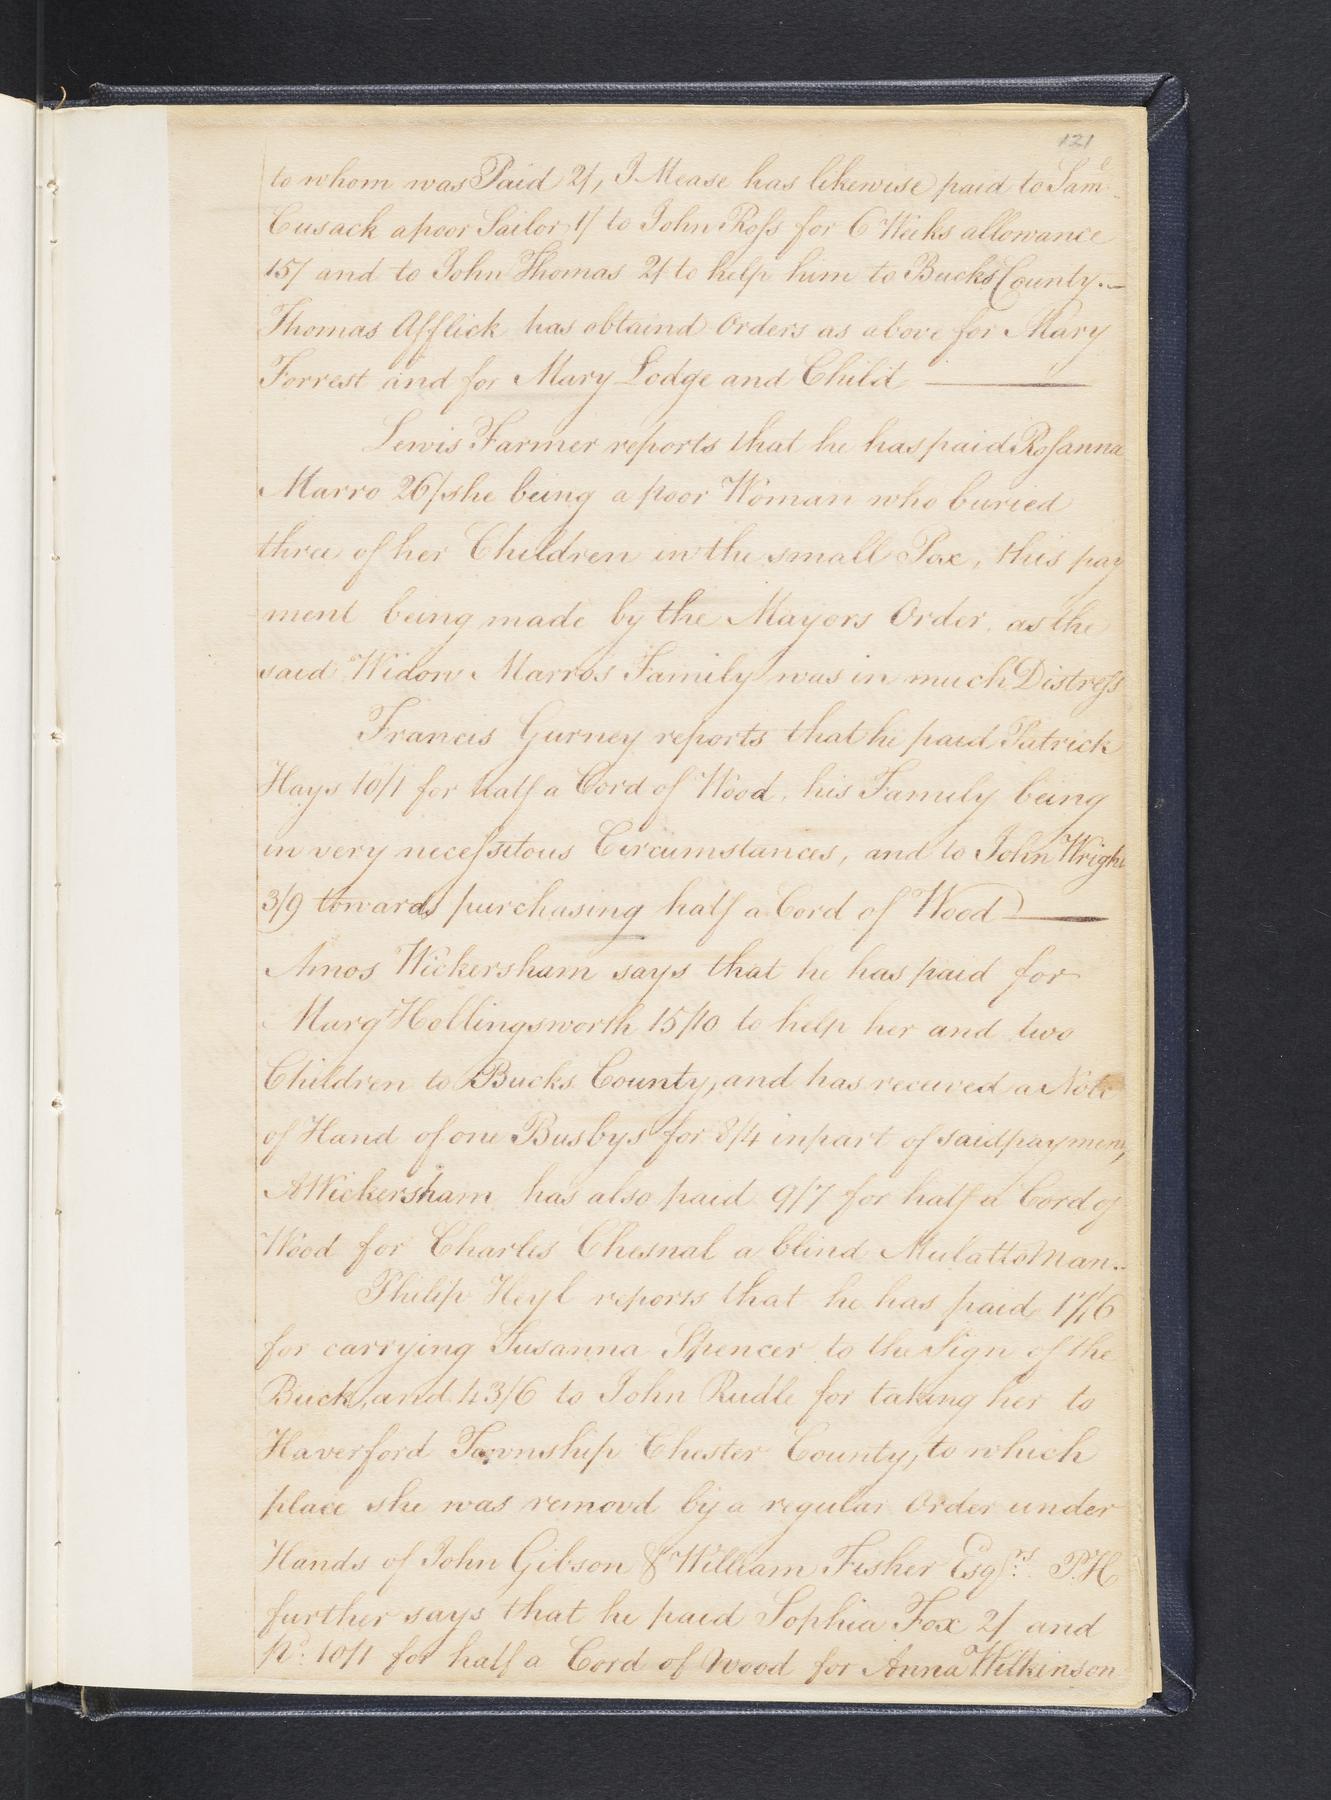 121
to whom was Paid 2/, J Mease has likewise paid to Saml
Cusack a poor Sailor 1/ to John Ross for 6 Weeks allowance
15/ and to John Thomas 2/ to help him to Bucks County.—
Thomas Afflick has obtaind Orders as above for Mary
Forrest and for Mary Lodge and Child —
Lewis Farmer reports that he has paid Rosanna
Marro 26/ she being a poor Woman who buried
three of her Children in the small Pox, this pay
ment being made by the Mayors Order, as the
said Widow Marro's Family was in much Distress
Francis Gurney reports that he paid Patrick
Hays 10/1 for half a Cord of Wood, his Family being
in very necessitous Circumstances, and to John Wright
3/9 towards purchasing half a Cord of Wood —
Amos Wickersham says that he has paid for
Margt Hollingsworth 15/10 to help her and two
Children to Bucks County, and has received a Note
of Hand of one Busbys for 8/4 in part of said payment,
A Wickersham has also paid 9/7 for half a Cord of
Wood for Charles Chesnal a blind Mulatto Man..
Philip Heyl reports that he has paid 17/6
for carrying Susanna Spencer to the Sign of the
Buck, and 43/6 to John Rudle for taking her to
Haverford Township Chester County, to which
place she was removd by a regular Order under
Hands of John Gibson & William Fisher Esqrs. P.H
further says that he paid Sophia Fox 2/ and
pd. 10/1 for half a Cord of Wood for Anna Wilkinson